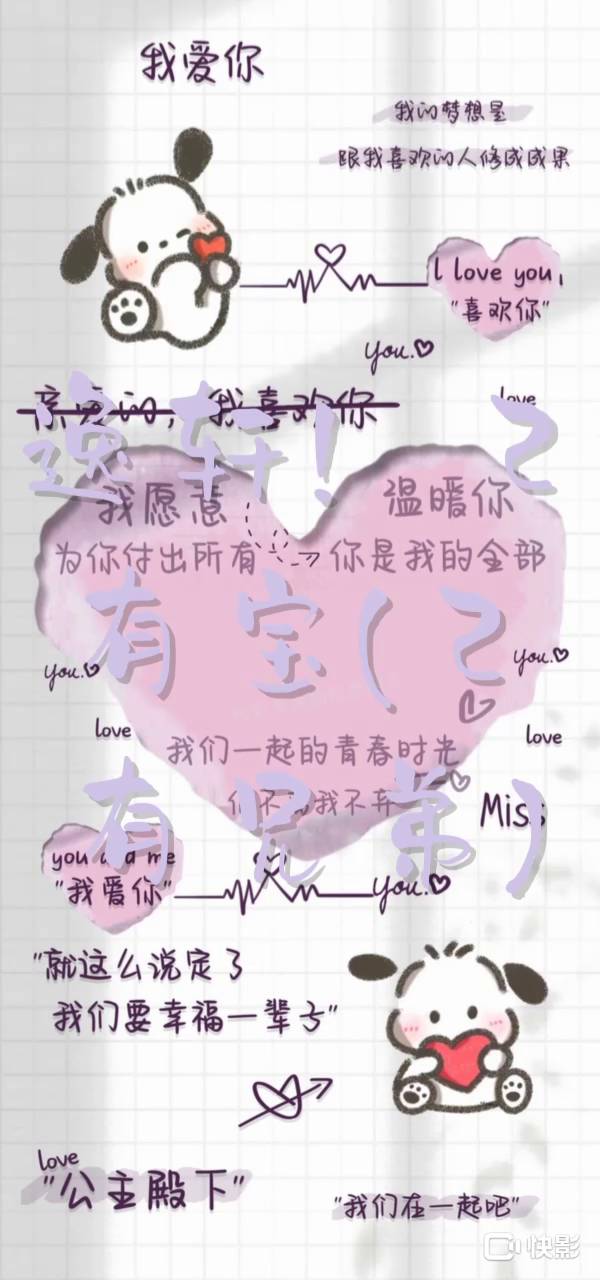 我爱你
我的梦想是
跟我喜欢的人修成成果
I love you,
"喜欢你"
you.
亲爱的，我喜欢你
love
逸轩! 己
我愿意
温暖你
为你付出所有
你是我的全部
有宝(己
you.
you.
love
love
我们一起的青春时光
你不 我不弃
Miss
有兄弟)
you and me
"我爱你"
you.
"就这么说定了
我们要幸福一辈子"
love
"公主殿下"
"我们在一起吧"
快影